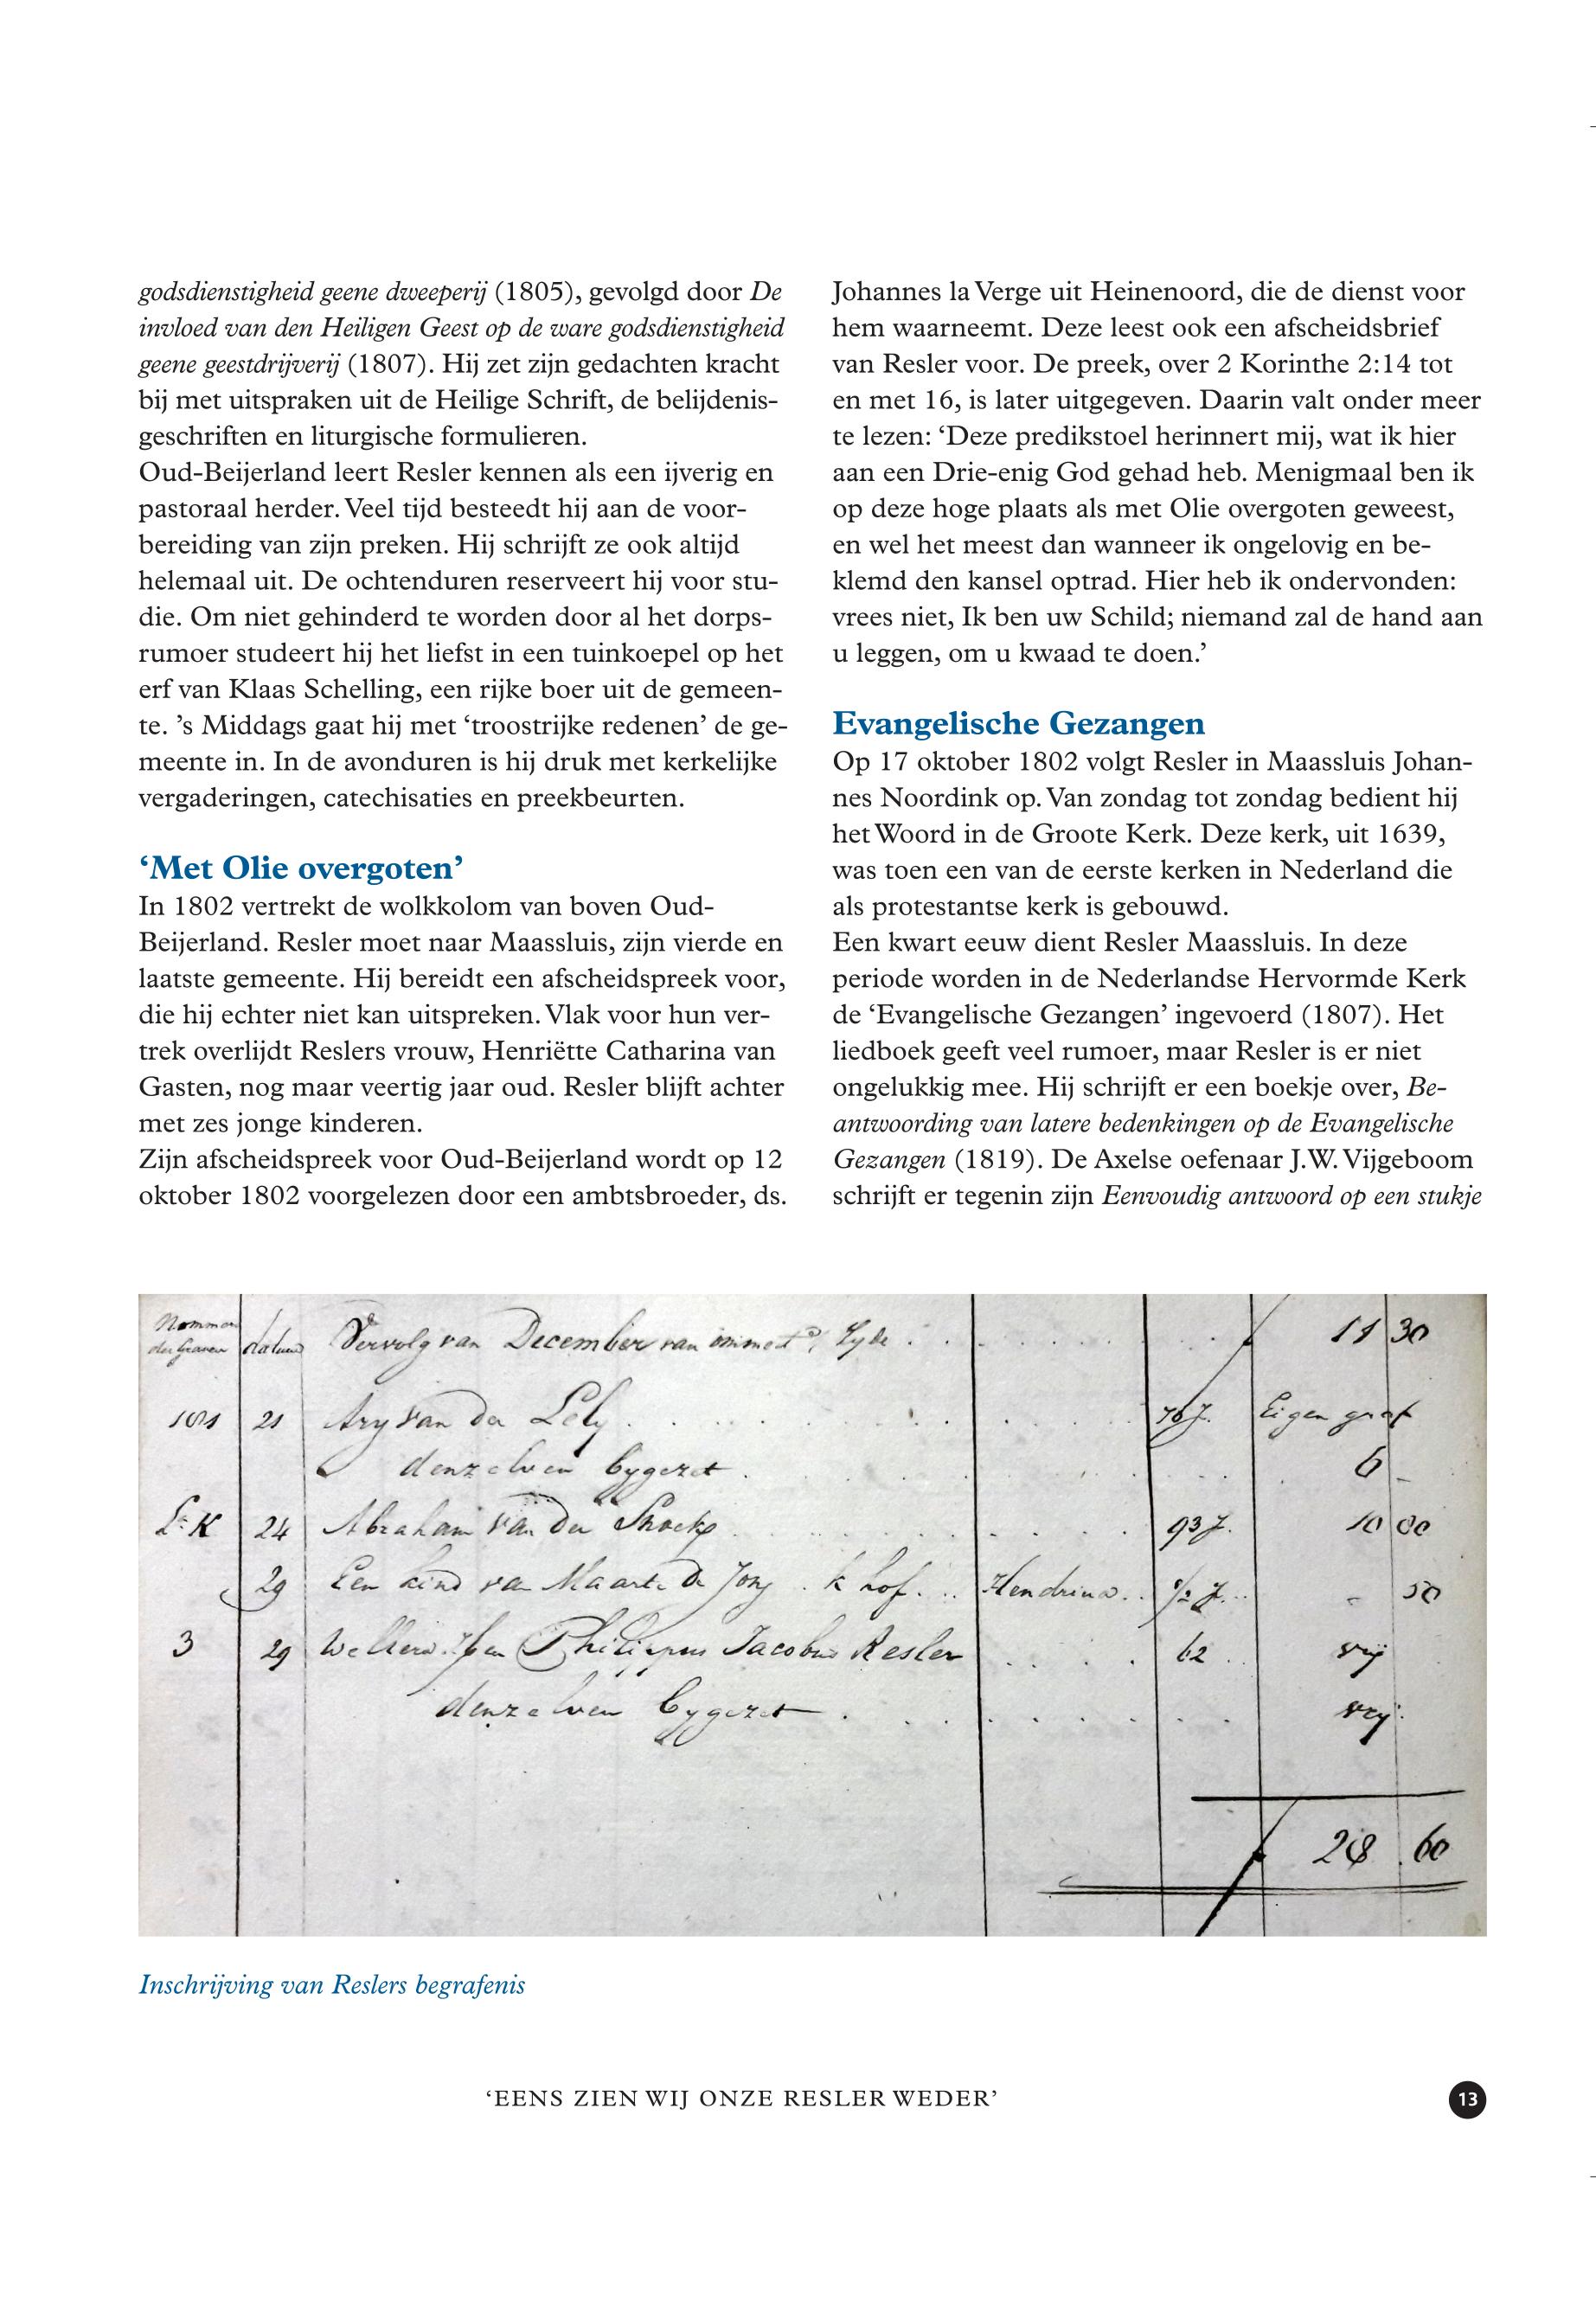 godsdienstigheid geene dweeperij (1805), gevolgd door De
invloed van den Heiligen Geest op de ware godsdienstigheid
geene geestdrijverij (1807). Hij zet zijn gedachten kracht
bij met uitspraken uit de Heilige Schrift, de belijdenis-
geschriften en liturgische formulieren.
Oud-Beijerland leert Resler kennen als een ijverig en
pastoraal herder. Veel tijd besteedt hij aan de voor-
bereiding van zijn preken. Hij schrijft ze ook altijd
helemaal uit. De ochtenduren reserveert hij voor stu-
die. Om niet gehinderd te worden door al het dorps-
rumoer studeert hij het liefst in een tuinkoepel op het
erf van Klaas Schelling, een rijke boer uit de gemeen-
te. ’s Middags gaat hij met ‘troostrijke redenen’ de ge-
meente in. In de avonduren is hij druk met kerkelijke
vergaderingen, catechisaties en preekbeurten.
‘Met Olie overgoten’
In 1802 vertrekt de wolkkolom van boven Oud-
Beijerland. Resler moet naar Maassluis, zijn vierde en
laatste gemeente. Hij bereidt een afscheidspreek voor,
die hij echter niet kan uitspreken. Vlak voor hun ver-
trek overlijdt Reslers vrouw, Henriëtte Catharina van
Gasten, nog maar veertig jaar oud. Resler blijft achter
met zes jonge kinderen.
Zijn afscheidspreek voor Oud-Beijerland wordt op 12
oktober 1802 voorgelezen door een ambtsbroeder, ds.
Johannes la Verge uit Heinenoord, die de dienst voor
hem waarneemt. Deze leest ook een afscheidsbrief
van Resler voor. De preek, over 2 Korinthe 2:14 tot
en met 16, is later uitgegeven. Daarin valt onder meer
te lezen: ‘Deze predikstoel herinnert mij, wat ik hier
aan een Drie-enig God gehad heb. Menigmaal ben ik
op deze hoge plaats als met Olie overgoten geweest,
en wel het meest dan wanneer ik ongelovig en be-
klemd den kansel optrad. Hier heb ik ondervonden:
vrees niet, Ik ben uw Schild; niemand zal de hand aan
u leggen, om u kwaad te doen.’
Evangelische Gezangen
Op 17 oktober 1802 volgt Resler in Maassluis Johan-
nes Noordink op. Van zondag tot zondag bedient hij
het Woord in de Groote Kerk. Deze kerk, uit 1639,
was toen een van de eerste kerken in Nederland die
als protestantse kerk is gebouwd.
Een kwart eeuw dient Resler Maassluis. In deze
periode worden in de Nederlandse Hervormde Kerk
de ‘Evangelische Gezangen’ ingevoerd (1807). Het
liedboek geeft veel rumoer, maar Resler is er niet
ongelukkig mee. Hij schrijft er een boekje over, Be-
antwoording van latere bedenkingen op de Evangelische
Gezangen (1819). De Axelse oefenaar J.W. Vijgeboom
schrijft er tegenin zijn Eenvoudig antwoord op een stukje
datum Vervolg van December van Zyde 11 30
21 Ary van der Lely 76 J. Eigen graf
denzelven bygezet 6 -
K 24 Abraham van der 93 J. 10 80
29 Een kind van Maart. de Jong k hof. Hendrina 1/2 J. - 50
3 29 Philippus Jacobus Resler 62 vrij
denzelven bygezet vrij
28 60
Inschrijving van Reslers begrafenis
‘EENS ZIEN WIJ ONZE RESLER WEDER’
13